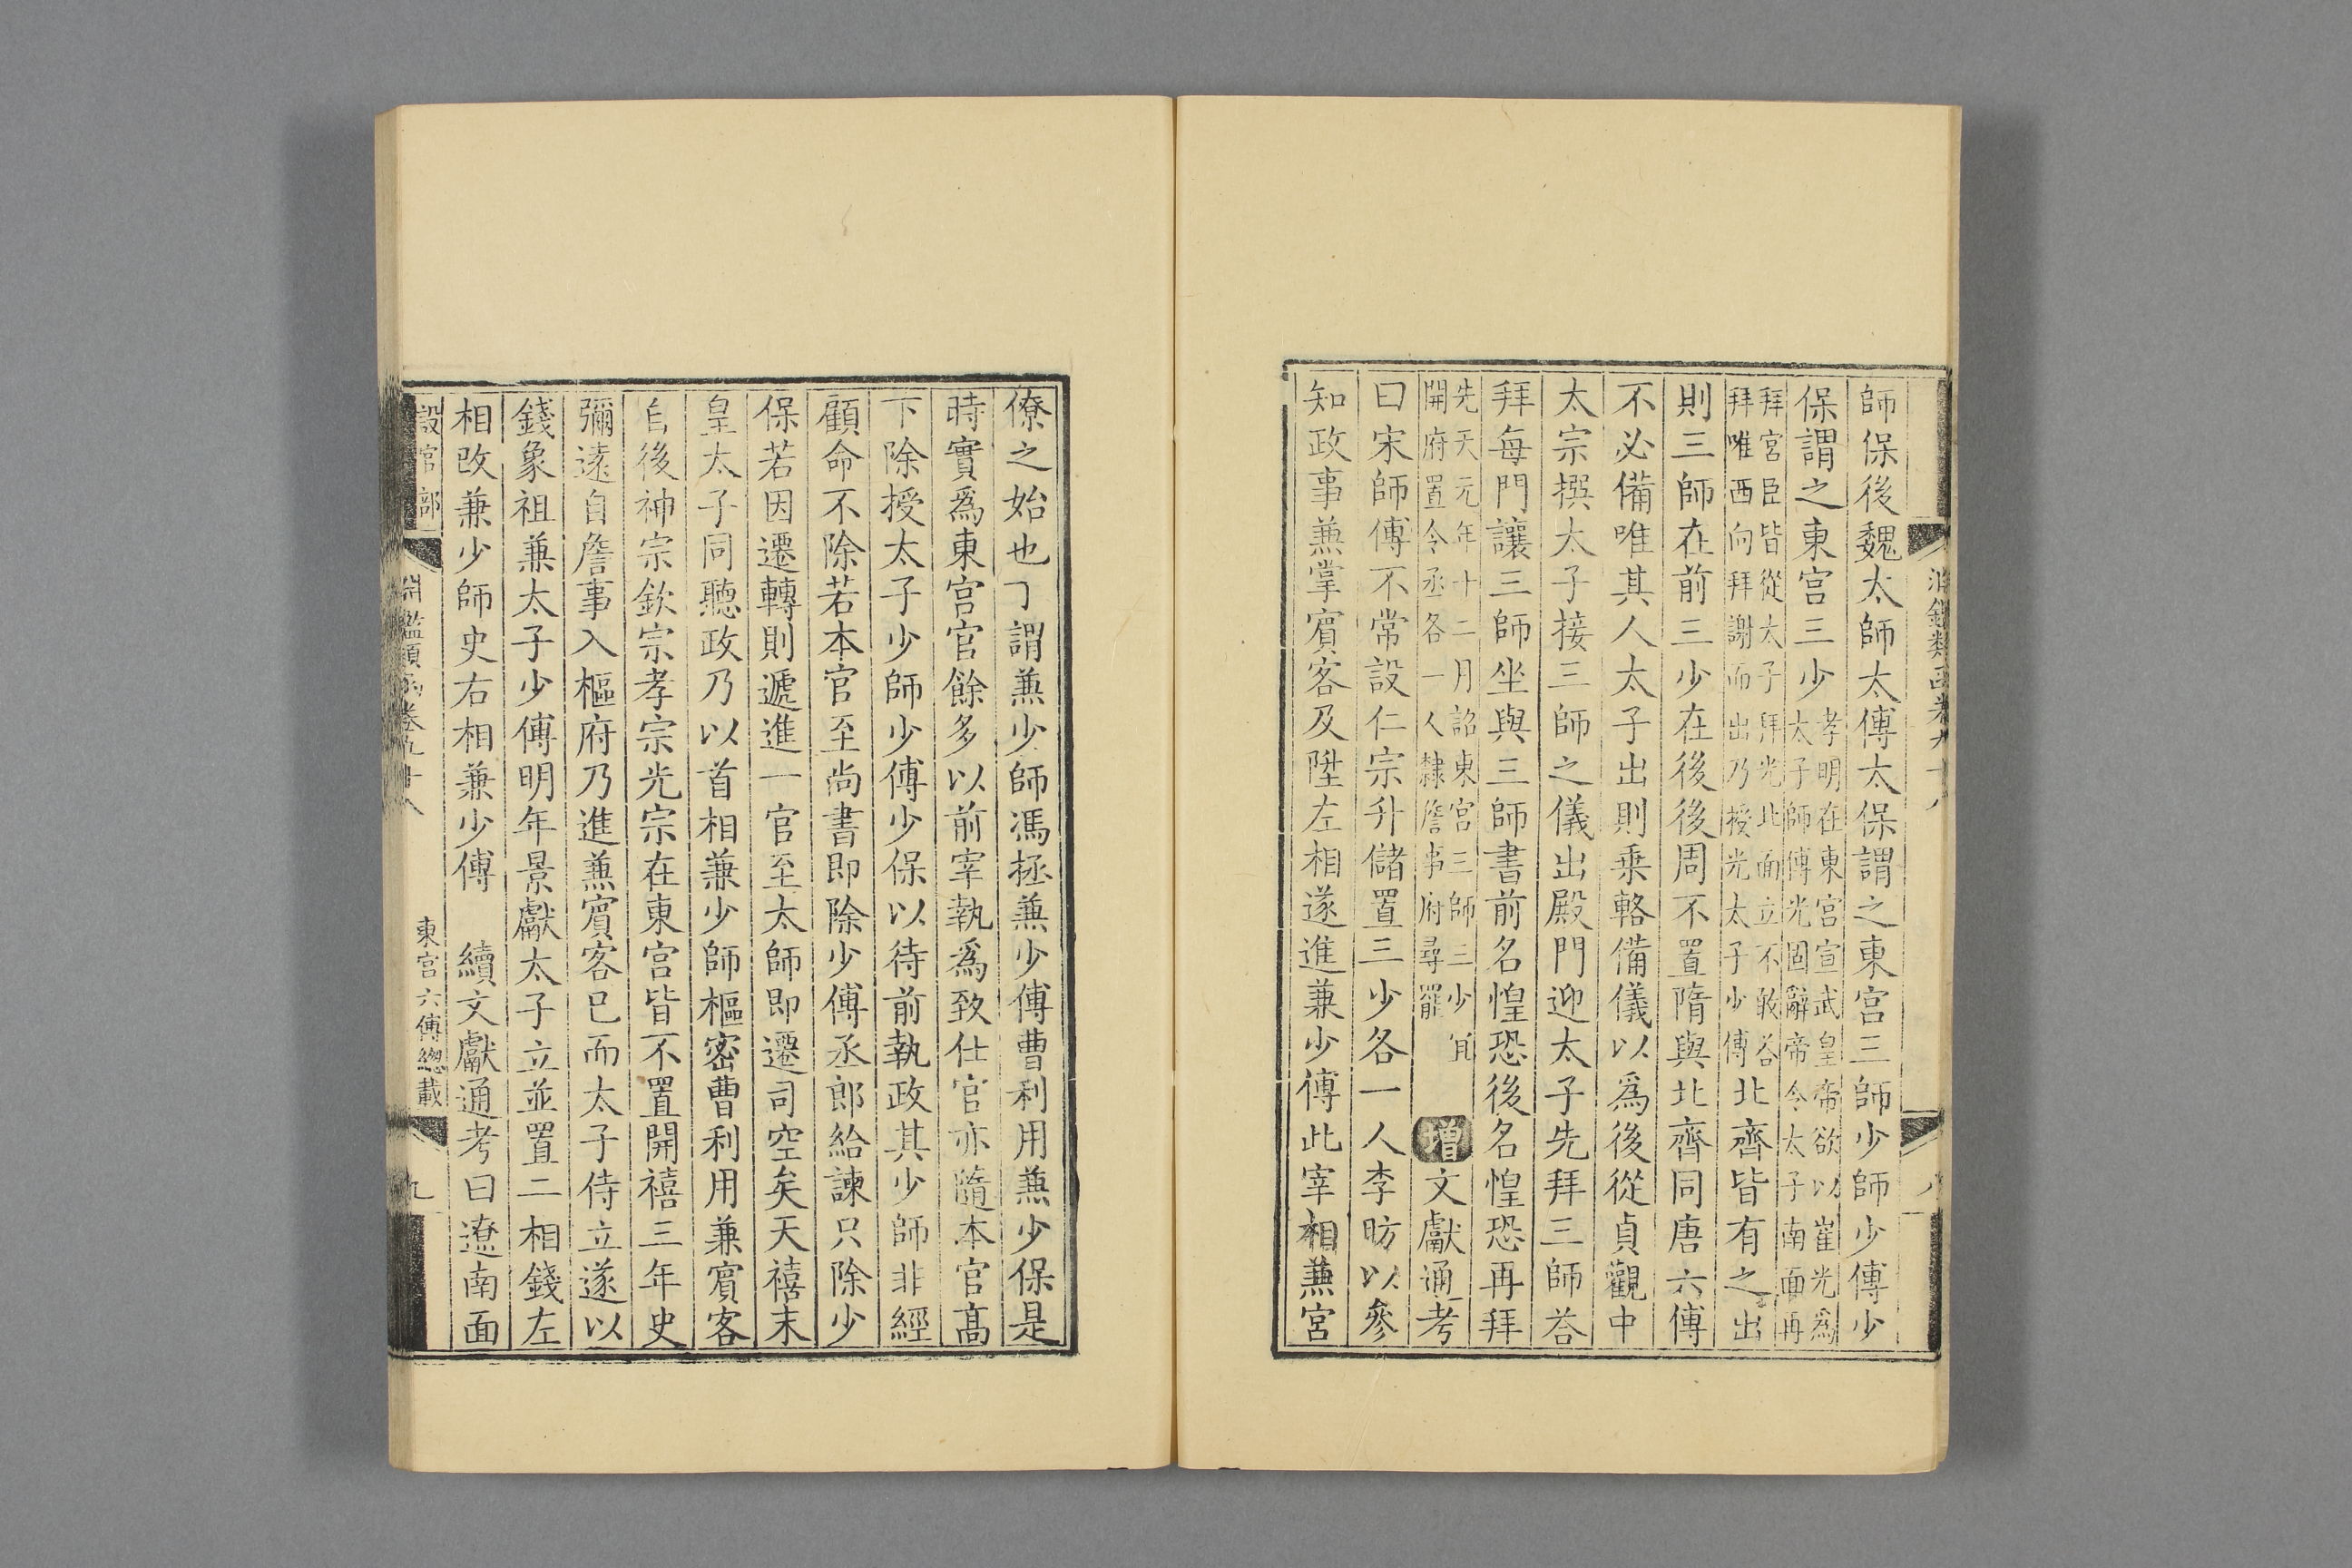 師保後魏太師太傅太保謂之東宮三師少師少傅少
保謂之東宮三少孝明在東宮宣武皇帝欲以崔光爲
太子師傅光固辭帝令太子南面再
拜宮臣皆從太子拜光北面立不敢荅
拜唯西向拜謝而出乃授光太子少傅北齊皆有之出
則三師在前三少在後後周不置隋與北齊同唐六傅
不必備唯其人太子出則乗輅備儀以爲後從貞觀中
太宗撰太子接三師之儀出殿門迎太子先拜三師荅
拜每門讓三師坐與三師書前名惶恐後名惶恐再拜
先天元年十二月詔東宮三師三少宜
開府置令丞各一人隸詹事府尋罷增文獻通考
曰宋師傅不常設仁宗升儲置三少各一人李昉以參
知政事兼掌賓客及陞左相遂進兼少傅此宰相兼宮
僚之始也丁謂兼少師馮拯兼少傅曹利用兼少保是
時實爲東宮官餘多以前宰執爲致仕官亦隨本官高
下除授太子少師少傅少保以待前執政其少師非經
顧命不除若本官至尚書即除少傅丞郎給諫只除少
保若因遷轉則遞進一官至太師即遷司空矣天禧末
皇太子同聽政乃以首相兼少師樞密曹利用兼賓客
自後神宗欽宗孝宗光宗在東宮皆不置開禧三年史
彌遠自詹事入樞府乃進兼賓客已而太子侍立遂以
錢象祖兼太子少傅明年景獻太子立並置二相錢左
相改兼少師史右相兼少傅　續文獻通考曰遼南面
設官部
淵鑑類函卷九十八
東宮六傅總載
九